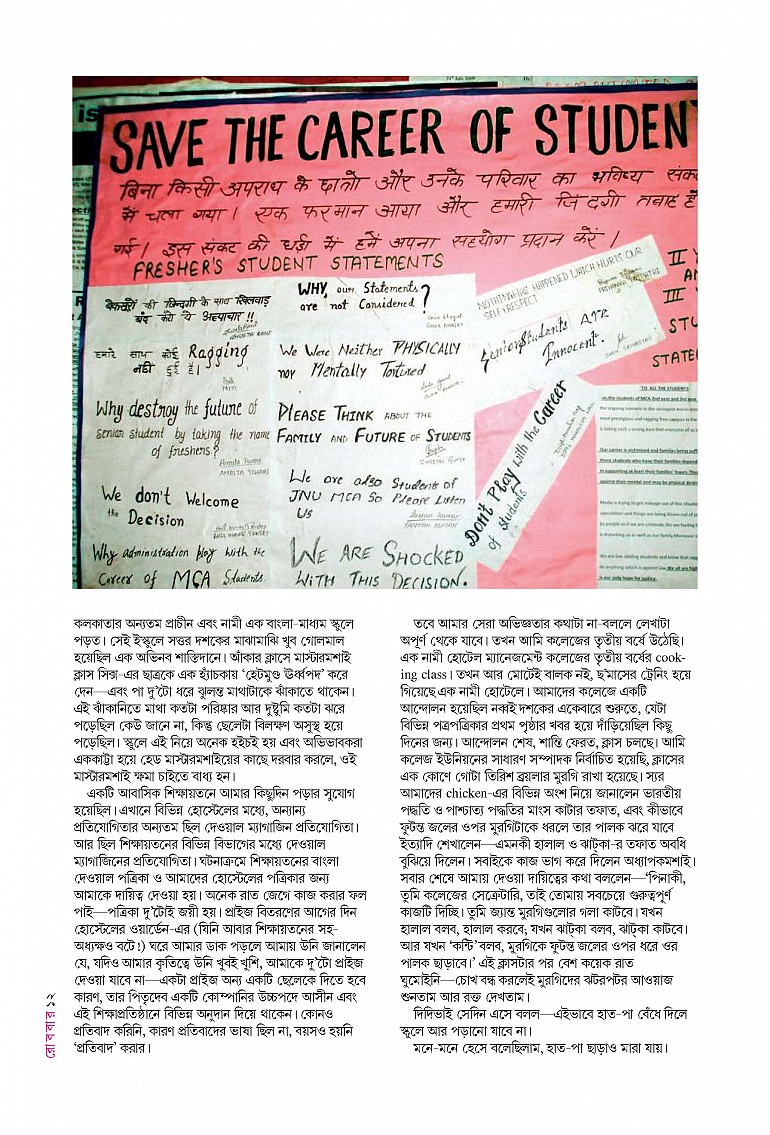 31st July 2009
SAVE THE CAREER OF STUDEN
बिना किसी अपराध के छात्रो और उनके परिवार का भविष्य संक
में चला गया। एक फरमान आया और हमारी जिंदगी तवाह हो
गई। इस संकट की घड़ी में हमें अपना सहयोग प्रदान करें।
FRESHER'S STUDENT STATEMENTS
बेकसूरों की जिन्दगी के साथ खिलवाड़
बंद करो ये अत्याचार !!
हमारे साथ कोई Ragging
नही हुई है।
Why destroy the future of
senior student by taking the name
of freshers?
AMRITA TIWARI
We don't Welcome
the Decision
Why administration play with the
Career of MCA Students.
WHY, our Statements
are not Considered?
We Were Neither PHYSICALLY
nor Mentally Tortured
PLEASE THINK ABOUT THE
FAMILY AND FUTURE OF STUDENTS
We are also Students of
JNU MCA So Please Listen
Us
WE ARE SHOCKED
WITH THIS DECISION.
NOTHING HAS HAPPENED WHICH HURTS OUR
SELF RESPECT.
Senior Students ARE
Innocent.
Don't Play with the Career
of Students
II Y
AN
III Y
STU
STATE
TO ALL THE STUDENTS
কলকাতার অন্যতম প্রাচীন এবং নামী এক বাংলা-মাধ্যম স্কুলে
পড়ত। সেই ইস্কুলে সত্তর দশকের মাঝামাঝি খুব গোলমাল
হয়েছিল এক অভিনব শাস্তিদানে। আঁকার ক্লাসে মাস্টারমশাই
ক্লাস সিক্স-এর ছাত্রকে এক হ্যাঁচকায় ‘হেঁটমুণ্ড ঊর্ধ্বপদ’ করে
দেন—এবং পা দু’টো ধরে ঝুলন্ত মাথাটাকে ঝাঁকাতে থাকেন।
এই ঝাঁকানিতে মাথা কতটা পরিষ্কার আর দুষ্টুমি কতটা ঝরে
পড়েছিল কেউ জানে না, কিন্তু ছেলেটা বিলক্ষণ অসুস্থ হয়ে
পড়েছিল। স্কুলে এই নিয়ে অনেক হইচই হয় এবং অভিভাবকরা
এককাট্টা হয়ে হেড মাস্টারমশাইয়ের কাছে দরবার করলে, ওই
মাস্টারমশাই ক্ষমা চাইতে বাধ্য হন।
একটি আবাসিক শিক্ষায়তনে আমার কিছুদিন পড়ার সুযোগ
হয়েছিল। এখানে বিভিন্ন হোস্টেলের মধ্যে, অন্যান্য
প্রতিযোগিতার অন্যতম ছিল দেওয়াল ম্যাগাজিন প্রতিযোগিতা।
আর ছিল শিক্ষায়তনের বিভিন্ন বিভাগের মধ্যে দেওয়াল
ম্যাগাজিনের প্রতিযোগিতা। ঘটনাক্রমে শিক্ষায়তনের বাংলা
দেওয়াল পত্রিকা ও আমাদের হোস্টেলের পত্রিকার জন্য
আমাকে দায়িত্ব দেওয়া হয়। অনেক রাত জেগে কাজ করার ফল
পাই—পত্রিকা দু’টোই জয়ী হয়। প্রাইজ বিতরণের আগের দিন
হোস্টেলের ওয়ার্ডেন-এর (যিনি আবার শিক্ষায়তনের সহ-
অধ্যক্ষও বটে!) ঘরে আমার ডাক পড়লে আমায় উনি জানালেন
যে, যদিও আমার কৃতিত্বে উনি খুবই খুশি, আমাকে দু’টো প্রাইজ
দেওয়া যাবে না—একটা প্রাইজ অন্য একটি ছেলেকে দিতে হবে
কারণ, তার পিতৃদেব একটি কোম্পানির উচ্চপদে আসীন এবং
এই শিক্ষাপ্রতিষ্ঠানে বিভিন্ন অনুদান দিয়ে থাকেন। কোনও
প্রতিবাদ করিনি, কারণ প্রতিবাদের ভাষা ছিল না, বয়সও হয়নি
‘প্রতিবাদ’ করার।
তবে আমার সেরা অভিজ্ঞতার কথাটা না-বললে লেখাটা
অপূর্ণ থেকে যাবে। তখন আমি কলেজের তৃতীয় বর্ষে উঠেছি।
এক নামী হোটেল ম্যানেজমেন্ট কলেজের তৃতীয় বর্ষের cook-
ing class। তখন আর মোটেই বালক নই, ছ’মাসের ট্রেনিং হয়ে
গিয়েছে এক নামী হোটেলে। আমাদের কলেজে একটি
আন্দোলন হয়েছিল নব্বই দশকের একেবারে শুরুতে, যেটা
বিভিন্ন পত্রপত্রিকার প্রথম পৃষ্ঠার খবর হয়ে দাঁড়িয়েছিল কিছু
দিনের জন্য। আন্দোলন শেষ, শান্তি ফেরত, ক্লাস চলছে। আমি
কলেজ ইউনিয়নের সাধারণ সম্পাদক নির্বাচিত হয়েছি, ক্লাসের
এক কোণে গোটা তিরিশ ব্রয়লার মুরগি রাখা হয়েছে। স্যর
আমাদের chicken-এর বিভিন্ন অংশ নিয়ে জানালেন ভারতীয়
পদ্ধতি ও পাশ্চাত্য পদ্ধতির মাংস কাটার তফাত, এবং কীভাবে
ফুটন্ত জলের ওপর মুরগিটাকে ধরলে তার পালক ঝরে যাবে
ইত্যাদি শেখালেন—এমনকী হালাল ও ঝাট্‌কা-র তফাত অবধি
বুঝিয়ে দিলেন। সবাইকে কাজ ভাগ করে দিলেন অধ্যাপকমশাই।
সবার শেষে আমায় দেওয়া দায়িত্বের কথা বললেন—‘পিনাকী,
তুমি কলেজের সেক্রেটারি, তাই তোমায় সবচেয়ে গুরুত্বপূর্ণ
কাজটি দিচ্ছি। তুমি জ্যান্ত মুরগিগুলোর গলা কাটবে। যখন
হালাল বলব, হালাল করবে; যখন ঝাট্‌কা বলব, ঝাট্‌কা কাটবে।
আর যখন ‘কন্টি’ বলব, মুরগিকে ফুটন্ত জলের ওপর ধরে ওর
পালক ছাড়াবে।’ এই ক্লাসটার পর বেশ কয়েক রাত
ঘুমোইনি—চোখ বন্ধ করলেই মুরগিদের ঝটরপটর আওয়াজ
শুনতাম আর রক্ত দেখতাম।
দিদিভাই সেদিন এসে বলল—এইভাবে হাত-পা বেঁধে দিলে
স্কুলে আর পড়ানো যাবে না।
মনে-মনে হেসে বলেছিলাম, হাত-পা ছাড়াও মারা যায়।
রোববার ১২